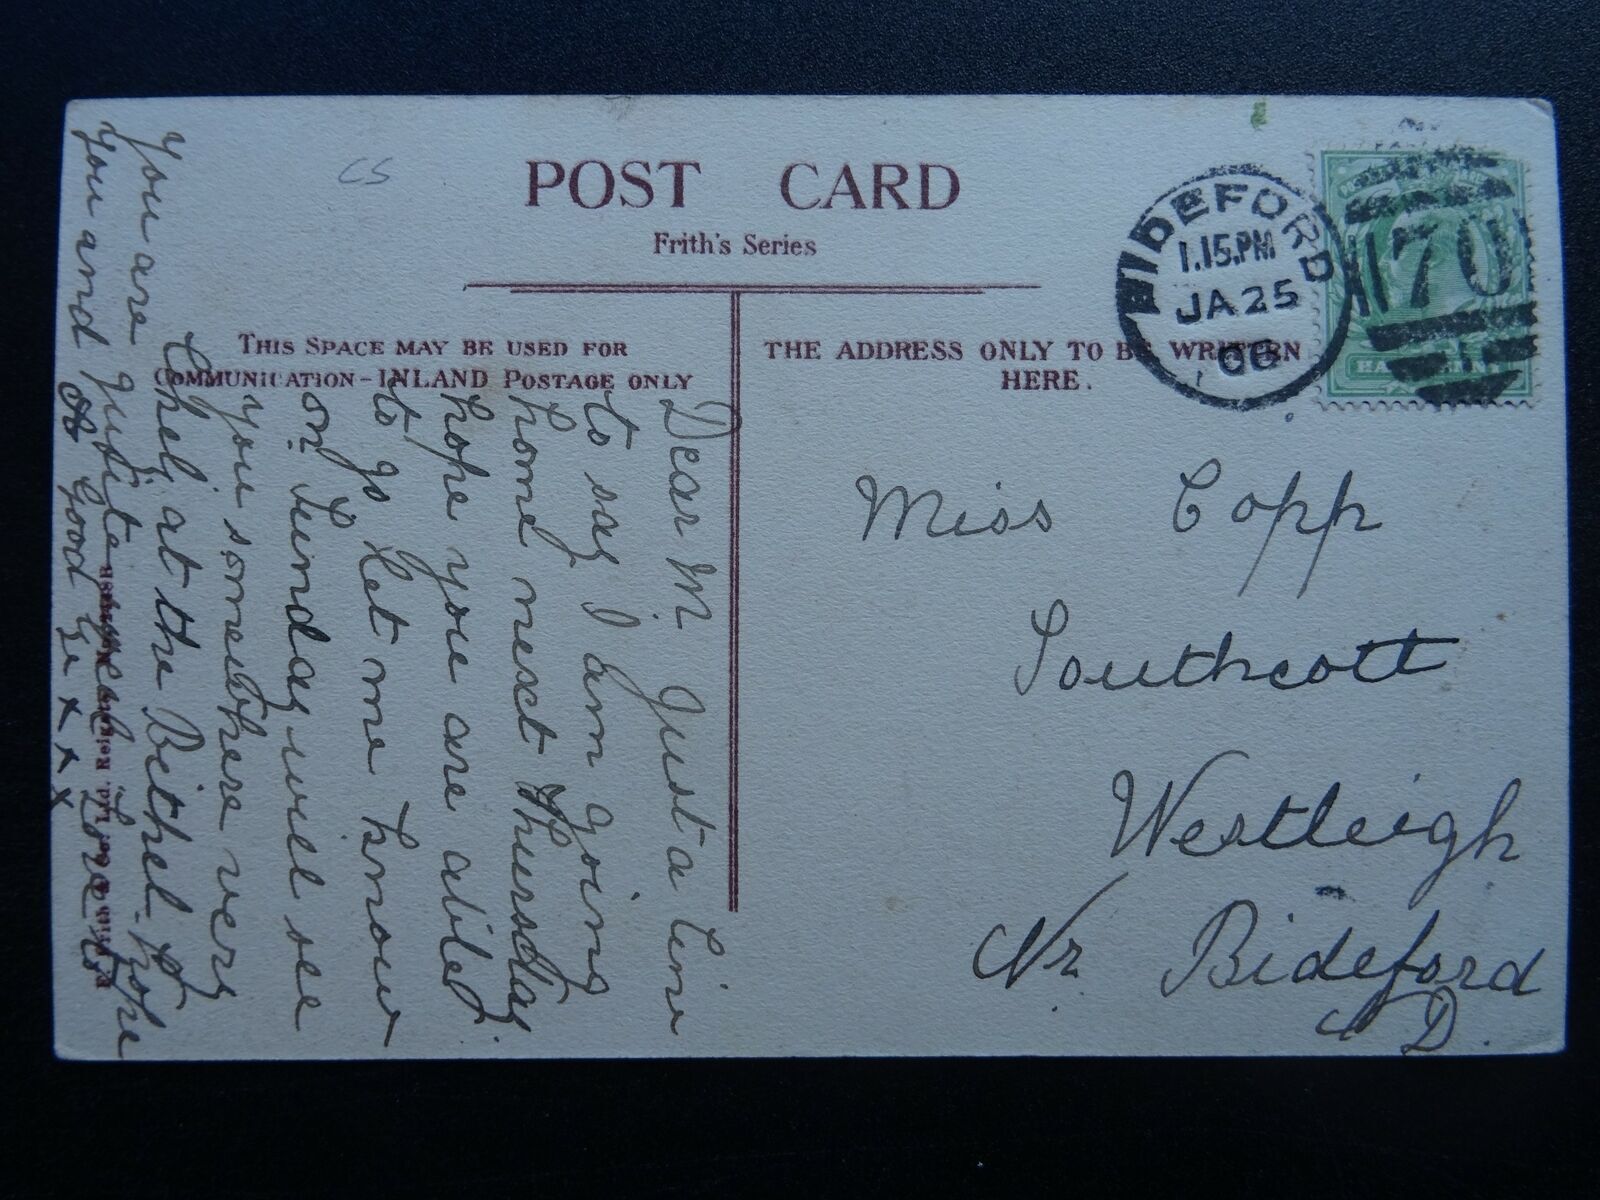 CS
POST CARD
Frith's Series
THIS SPACE MAY BE USED FOR
COMMUNICATION-INLAND POSTAGE ONLY
THE ADDRESS ONLY TO BE WRITTEN
HERE.
BIDEFORD
1.15.PM
JA 25
06
70
Miss Copp
Southcott
Westleigh
Nr. Bideford
N D.
Dear M Just a line
to say I am going
home next Thursday
hope you are abled
to go Let me know
on Sunday will see
you somewhere very
likely at the Bethel hope
you are quite well Love to
you and
Good bye x x x
Ltd. Reigate